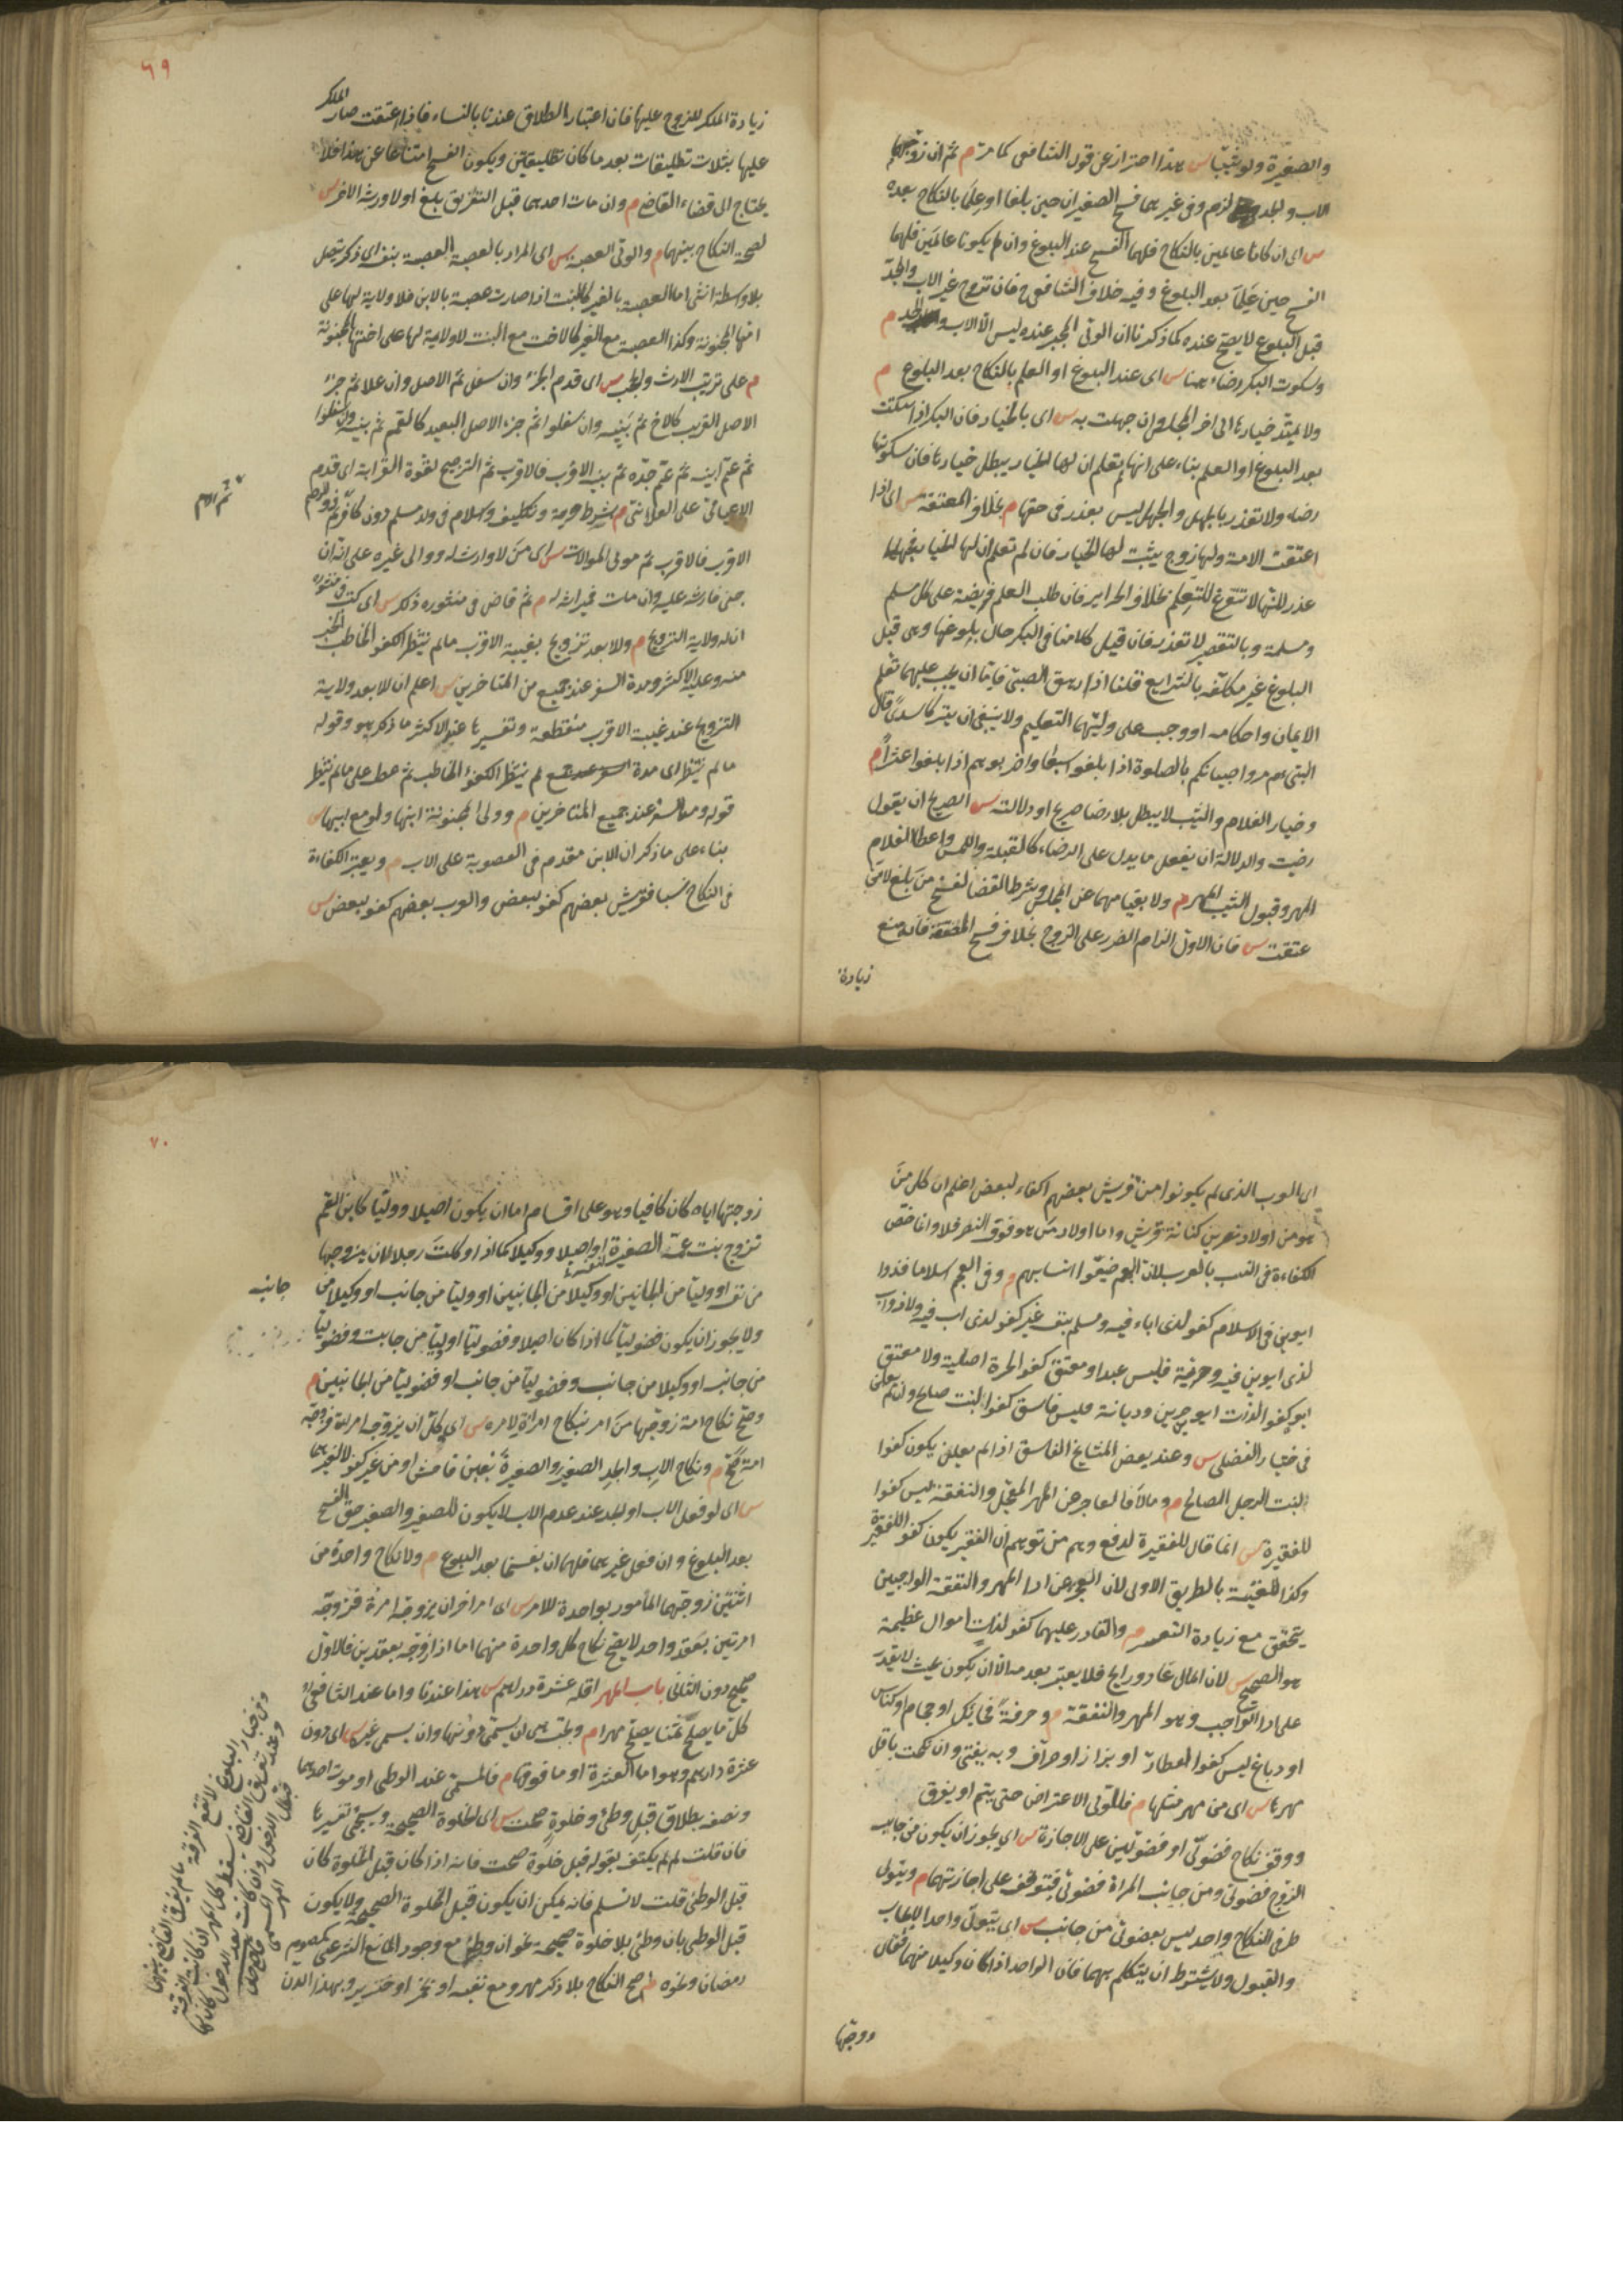 والصغيرة ولو ثيبا س هذا احتراز عن قول الشافعى كما مر م ثم ان زوجهما
الاب والجد لزم وفى غيرهما فسخ الصغيران حين بلغا او علما بالنكاح بعده
س اى ان كانا عالمين بالنكاح فلهما الفسخ عند البلوغ وان لم يكونا عالمين فلهما
الفسخ حين علما بعد البلوغ وفيه خلاف الشافعى فان تزوج غير الاب والجد
قبل البلوغ لا يصح عنده كما ذكرنا ان الولى المجبر عنده ليس الا الاب والجد م
وسكوت البكر رضاء هنا س اى عند البلوغ او العلم بالنكاح بعد البلوغ م
ولا يمتد خيارها الى اخر المجلس وان جهلت به س اى بالخيار فان البكر اذا سكتت
بعد البلوغ او العلم بناء على انها لم تعلم ان لها الخيار يبطل خيارها فان سكوتها
رضاء ولا تعذر بالجهل والجهل ليس بعذر فى حقها م بخلاف المعتقة س اى اذا
اعتقت الامة ولها زوج يثبت لها الخيار فان لم تعلم ان لها الخيار فجهلها
عذر لانها لا تتفرغ للتعلم بخلاف الحراير فان طلب العلم فريضة على كل مسلم
ومسلمة وبالتقصير لا تعذر فان قيل كلامنا فى البكر حال بلوغها وهى قبل
البلوغ غير مكلفة بالشرايع قلنا اذا راهق الصبى فاما ان يجب عليهما تعلم
الايمان واحكامه او وجب على وليهما التعليم ولا ينبغى ان يترك سدى قال
النبى عم مروا صبيانكم بالصلوة اذا بلغوا سبعا واضربوهم اذا بلغوا عشرا م
وخيار الغلام والثيب لا يبطل بلا رضا صريح او دلالته س الصريح ان يقول
رضيت والدلالة ان يفعل ما يدل على الرضاء كالقبلة واللمس واعطا الغلام
المهر وقبول الثيب المهر م ولا بقيامهما عن المجلس وشرط القضا لفسخ من بلغ لا من
عتقت س فان الاول الزام الضرر على الزوج بخلاف فسخ المعتقة فانه منع
زيادة
٦٩
زيادة الملك للزوج عليها فان اعتبار الطلاق عندنا بالنساء فاذا اعتقت صار الملك
عليها بثلاث تطليقات بعد ما كان تطليقتين ويكون الفسخ امتناعا عن هذا فلا
يحتاج الى قضاء القاضى م وان مات احدهما قبل التفريق بلغ او لا ورثه الاخر س
لصحة النكاح بينهما م والولى العصبة س اى المراد بالعصبة العصبة بنفسه اى ذكر يتصل
بلا واسطة انثى اما العصبة بالغير كالبنت اذا صارت عصبة بالابن فلا ولاية لها على
امها المجنونة وكذا العصبة مع الغير كالاخت مع البنت لا ولاية لها على اختها المجنونة
م على ترتيب الارث والحجب س اى قدم الجزء وان سفل ثم الاصل وان علا ثم جزء
الاصل القريب كالاخ ثم بنيه وان سفلوا ثم جزء الاصل البعيد كالعم ثم بنيه وان سفلوا
ثم عم ابيه ثم بنيه ثم عم جده ثم بنيه الاقرب فالاقرب ثم الترجيح لقوة القرابة اى قدم
الاعيانى على العلاتى م بشرط حرية وتكليف واسلام فى ولد مسلم دون كافر ثم ذو الرحم
ثم الام
الاقرب فالاقرب ثم مولى الموالات س اى من لا وارث له ووالى غيره على انه ان
جنى فارشه عليه وان مات فميراثه له م ثم قاض فى منشوره ذلك س اى كتب فى منشوره
ان له ولاية التزويج م وللابعد تزويج بغيبة الاقرب ما لم ينتظر الكفو الخاطب الخبر
منه وعليه الاكثر ومدة السفر عند جميع من المتاخرين س اعلم ان للابعد ولاية
التزويج عند غيبة الاقرب منقطعة وتفسيرها عند الاكثر ما ذكر هو وقوله
ما لم ينتظر اى مدة لم ينتظر الكفؤ الخاطب ثم عطف على ما لم ينتظر
قوله ومدة السفر عند جميع المتاخرين م وولى المجنونة ابنها ولو مع ابيها س
بناء على ما ذكر ان الابن مقدم فى العصوبة على الاب م ويعتبر الكفاءة
فى النكاح نسبا فقريش بعضهم كفو لبعض والعرب بعضهم كفو لبعض س
اى العرب الذى لم يكونوا من قريش بعضهم اكفاء لبعض اعلم ان كل من
هو من اولاد نضر بن كنانة قريش واما اولاد من هو فوق النضر فلا وانما خص
الكفاءة فى النسب بالعرب لان العجم ضيعوا انسابهم م وفى العجم اسلاما فذوا
ابوين فى الاسلام كفو لذى اباء فيه ومسلم بنفسه غير كفو لذى اب فيه ولا ذو اب
لذى ابوين فيه وحرية فليس عبد او معتق كفو الحرة اصلية ولا معتق
ابوه كفو الذات ابوين حرين وديانة فليس فاسق كفوا لبنت صالح وان لم يعلن
فى اختيار الفضلى س وعند بعض المشايخ الفاسق اذا لم يعلن يكون كفوا
لبنت الرجل الصالح م ومالا فالعاجز عن المهر المعجل والنفقة ليس كفوا
للفقيرة س انما قال للفقيرة لدفع وهم من توهم ان الفقير يكون كفو اللفقيرة
وكذا للغنية بالطريق الاولى لان العجز عن ادا المهر والنفقة الواجبين
يتحقق مع زيادة التعسر م والقادر عليهما كفو لذات اموال عظيمة
هو الصحيح س لان المال غاد ورايح فلا يعتبر بعدمه الا ان يكون بحيث لا يقدر
على ادا الواجب وهو المهر والنفقة م وحرفة فحائك او حجام او كناس
او دباغ ليس كفوا لعطار او بزاز او صراف وبه يفتى وان نكحت باقل
مهرها س اى من مهر مثلها م فللولى الاعتراض حتى يتم او يفرق
ووقف نكاح فضولى او فضوليين على الاجازة س اى يجوز ان يكون من جانب
الزوج فضولى ومن جانب المراة فضولى فيتوقف على اجازتهما م ويتولى
طرفى النكاح واحد ليس بفضولى من جانب س اى يتولى واحد الايجاب
والقبول ولا يشترط ان يتكلم بهما فان الواحد اذا كان وكيلا منهما فقال
زوجتها
٧٠
زوجتها اياه كان كافيا وهو على اقسام اما ان يكون اصيلا ووليا كابن العم
تزوج بنت عمه الصغيرة او اصيلا ووكيلا كما اذا وكلت رجلا لان يزوجها
من نفسه او وليا من الجانبين او وكيلا من الجانبين او وليا من جانب او وكيلا من
جانب
ولا يجوز ان يكون فضوليا كما اذا كان اصيلا وفضوليا او وليا من جانب وفضوليا
من جانب او وكيلا من جانب وفضوليا من جانب او فضوليا من الجانبين م
وصح نكاح امة زوجها من امر بنكاح امراة لامره س اى وكل ان يزوجه امراة فزوجه
امة صح م ونكاح الاب والجد الصغير والصغيرة بغبن فاحش او من غير كفو لا لغيرهما
س اى لو فعل الاب او الجد عند عدم الاب لا يكون للصغير والصغيرة حق الفسخ
بعد البلوغ وان فعل غيرهما فلهما ان يفسخا بعد البلوغ م ولا نكاح واحدة من
اثنتين زوجهما المأمور بواحدة للامر س اى امر اخر ان يزوجه امرأة فزوجه
امرتين بعقد واحد لا يصح نكاح كل واحدة منهما اما اذا زوجه بعقدين فالاول
صحيح دون الثانى باب المهر اقله عشرة دراهم س هذا عندنا واما عند الشافعى
كل ما يصلح ثمنا يصلح مهرا م وتجب هى ان سمى دونها وان سمى غيره س اى دون
عشرة دراهم وهو اما العشرة او ما فوقها م فالمسمى عند الوطى او موت احدهما
ونصفه بطلاق قبل وطئ وخلوة صحت س اى الخلوة الصحيحة وسيجئ تفسيرها
فان قلت لم لم يكتف بقوله قبل خلوة صحت فانه اذا كان قبل الخلوة كان
قبل الوطى قلت لا نسلم فانه يمكن ان يكون قبل الخلوة الصحيحة ولا يكون
قبل الوطى بان وطئ بلا خلوة صحيحة نحو ان وطئ مع وجود المانع الشرعى كصوم
رمضان ونحوه م صح النكاح بلا ذكر مهر ومع نفيه او بخمر او خنزير وبهذا الدن